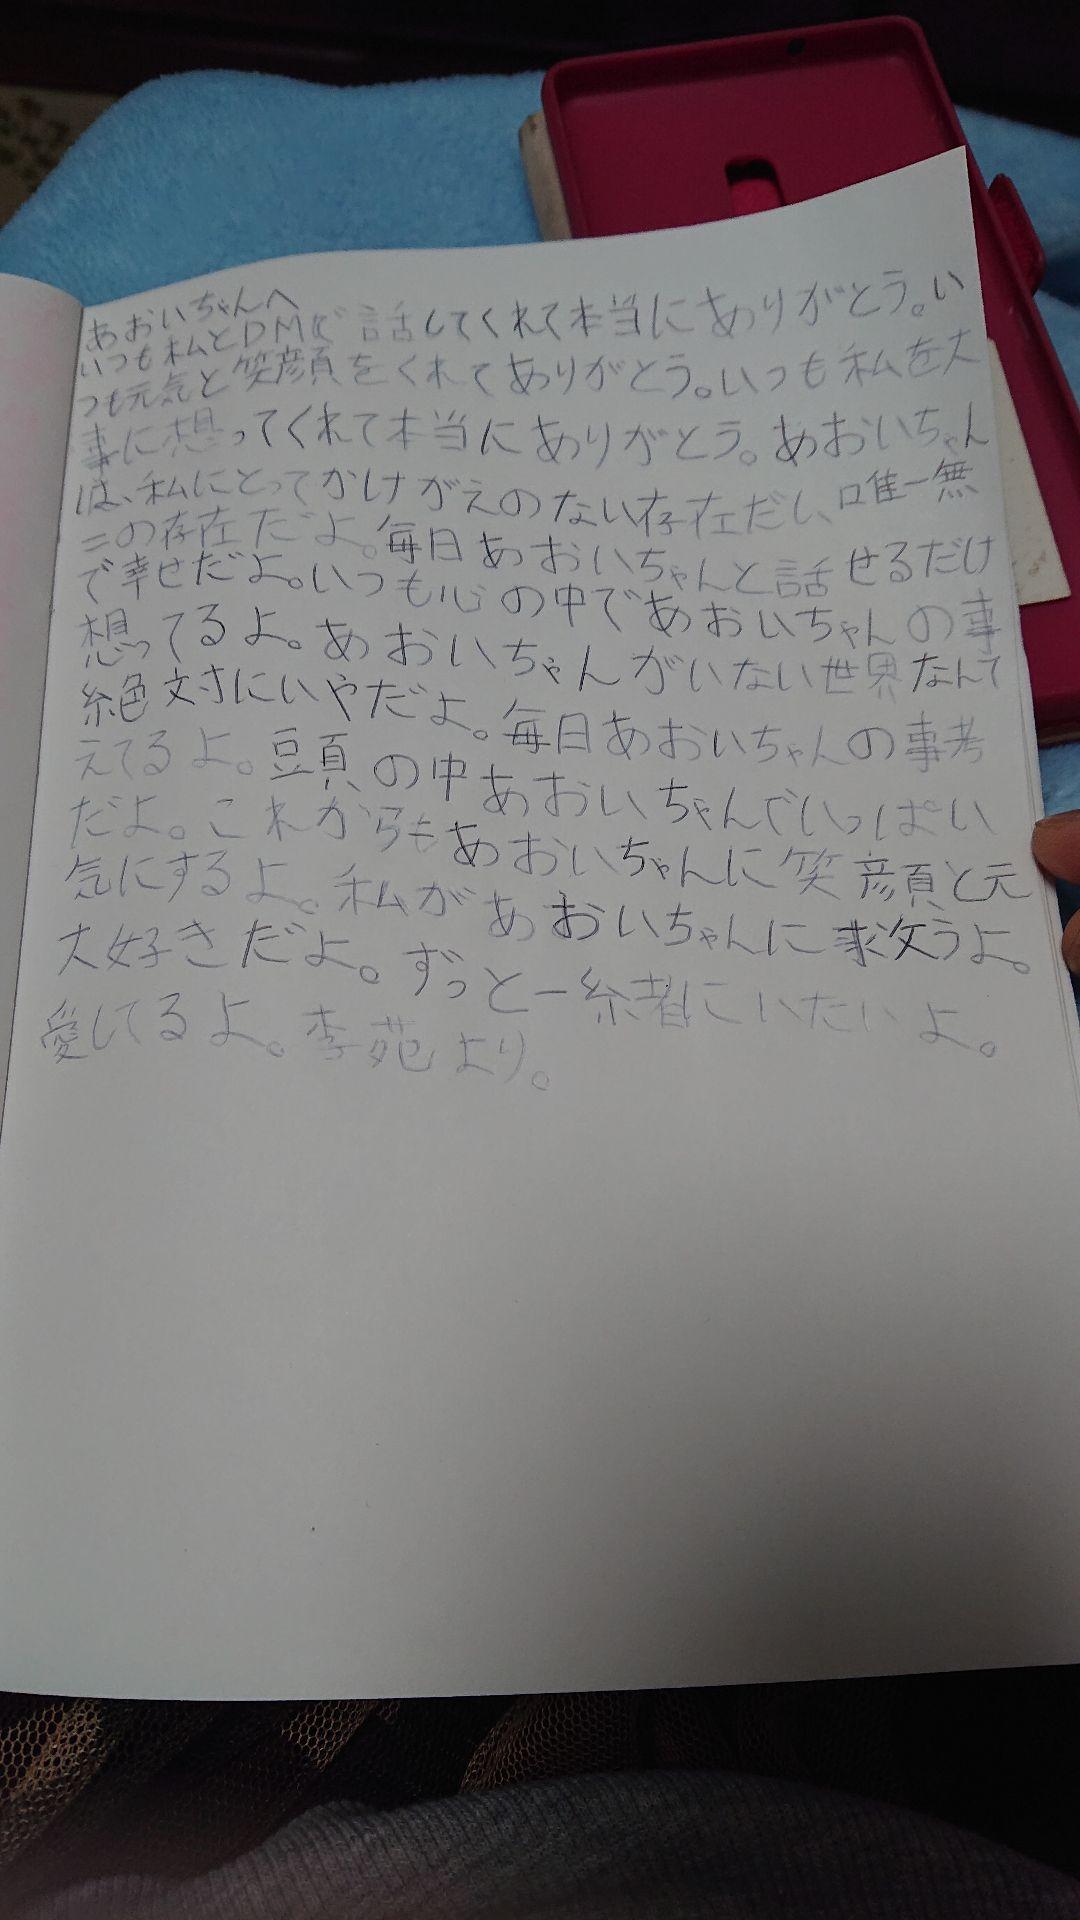 あおいちゃんへ
いつも私とDMで話してくれて本当にありがとう。い
つも元気と笑顔をくれてありがとう。いつも私を大
事に想ってくれて本当にありがとう。あおいちゃん
は、私にとってかけがえのない存在だし、唯一無
二の存在だよ。毎日あおいちゃんと話せるだけ
で幸せだよ。いつも心の中であおいちゃんの事
想ってるよ。あおいちゃんがいない世界なんて
絶対にいやだよ。毎日あおいちゃんの事考
えてるよ。頭の中あおいちゃんでいっぱい
だよ。これからもあおいちゃんに笑顔と元
気にするよ。私があおいちゃんに救うよ。
大好きだよ。ずっと一緒にいたいよ。
愛してるよ。李苑より。